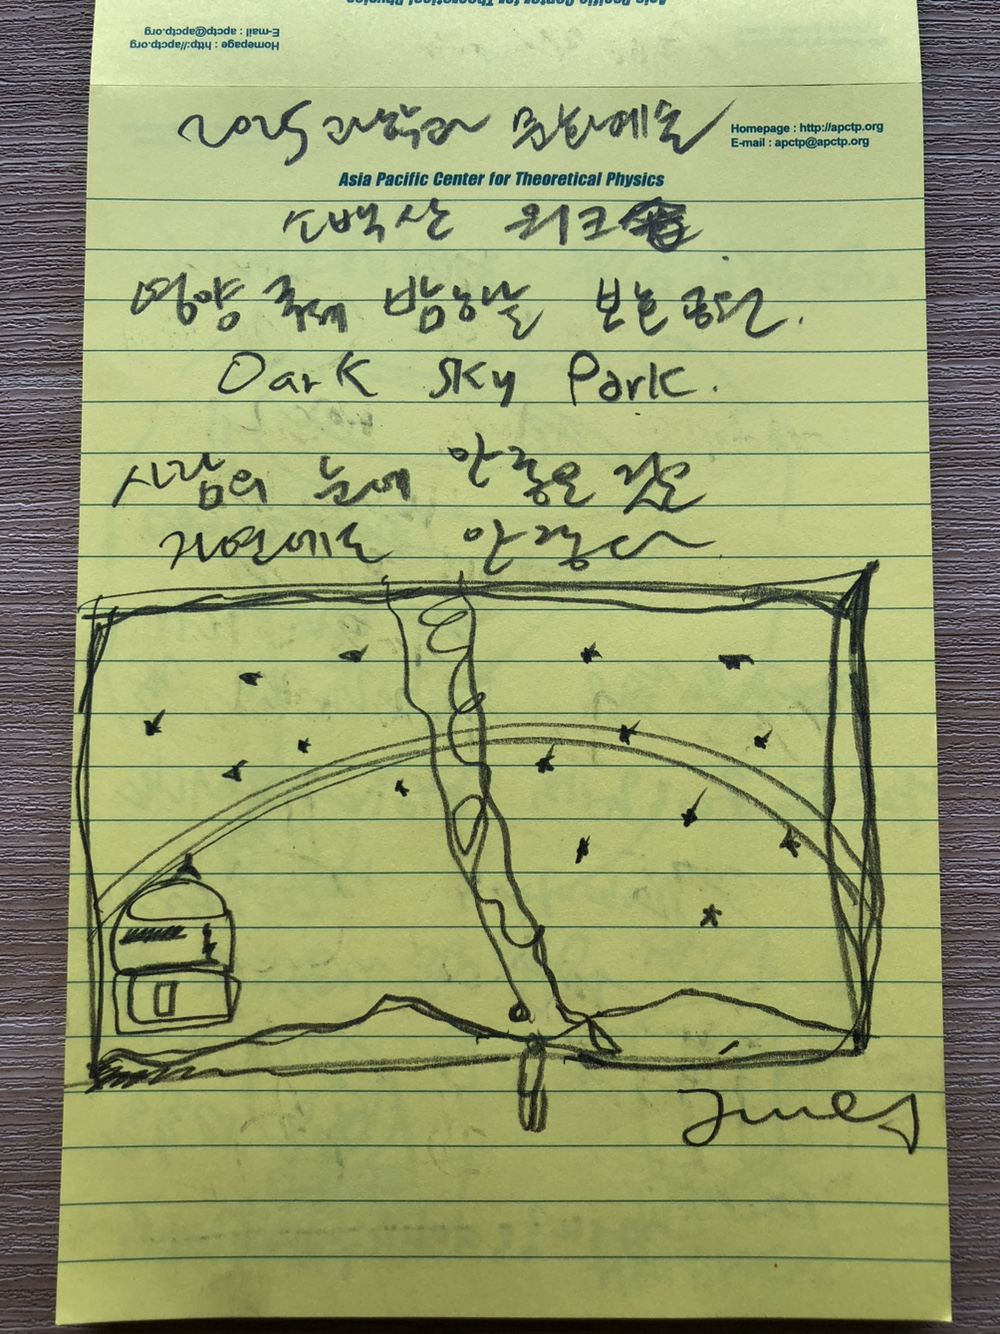 Asia Pacific Center for Theoretical Physics
Homepage : http://apctp.org
E-mail : apctp@apctp.org
2025 과학과 문화예술
Homepage : http://apctp.org
E-mail : apctp@apctp.org
Asia Pacific Center for Theoretical Physics
소백산 워크숍
영양 국제 밤하늘 보호공원.
Dark Sky Park.
사람의 눈에 안 좋은 것은
자연에도 안 좋다